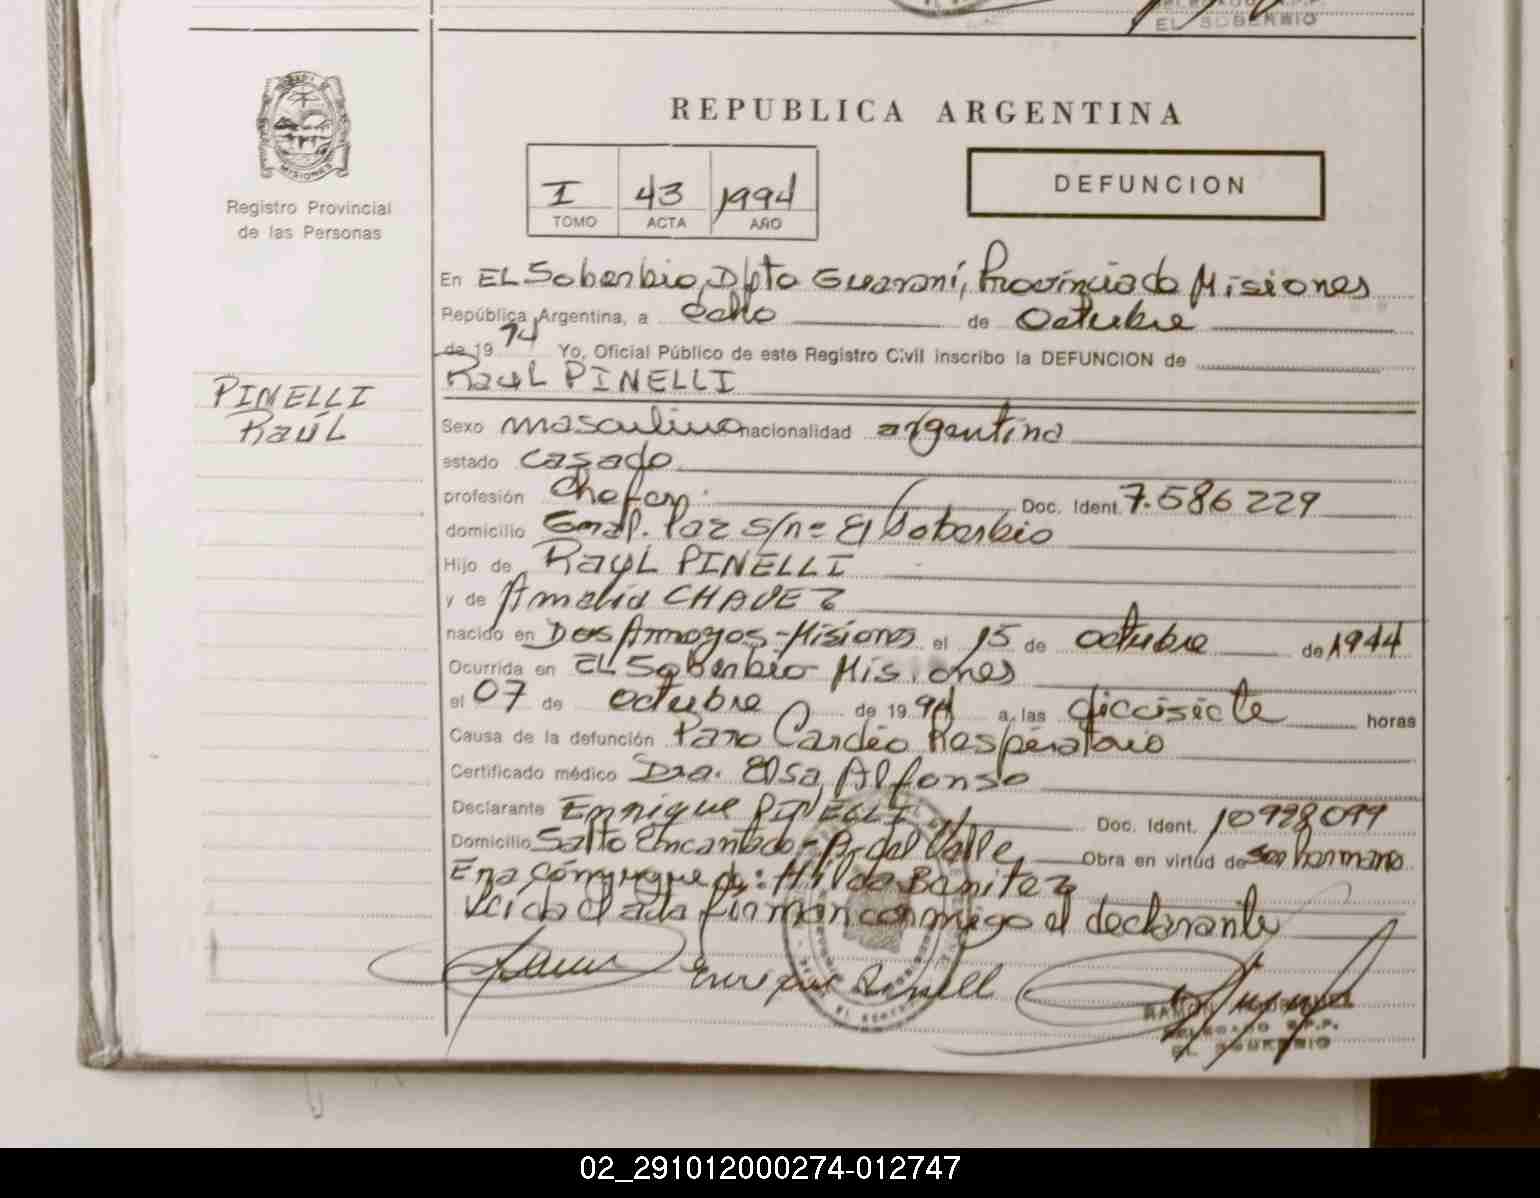 EL SOBERBIO
REPUBLICA ARGENTINA
MISIONES
Registro Provincial
de las Personas
I 43 1994
TOMO ACTA AÑO
DEFUNCION
En EL Soberbio, Dpto Guaraní, Provincia de Misiones
República Argentina, a ocho de Octubre
de 19 94 Yo, Oficial Público de este Registro Civil inscribo la DEFUNCION de
Raul PINELLI
PINELLI
Raúl
Sexo masculino nacionalidad argentina
estado casado
profesión Chofer Doc. Ident. 7.586229
domicilio Gral. Paz s/nº El Soberbio
Hijo de Raul PINELLI
y de Amelia CHAVEZ
nacido en Dos Arroyos - Misiones el 15 de octubre de 1944
Ocurrida en EL Soberbio Misiones
el 07 de octubre de 19 94 a las diecisiete horas
Causa de la defunción Paro Cardio Respiratorio
Certificado médico Dra. Elsa Alfonso
Declarante Enrique PINELLI Doc. Ident. 10928099
Domicilio Salto Encantado - A. del Valle Obra en virtud de ser hermano
Era cónyugue de: Hilda Benitez
Leida el acta firman conmigo el declarante
Enrique Pinelli
RAMON
DELEGADO R.P.P.
EL SOBERBIO
02_291012000274-012747